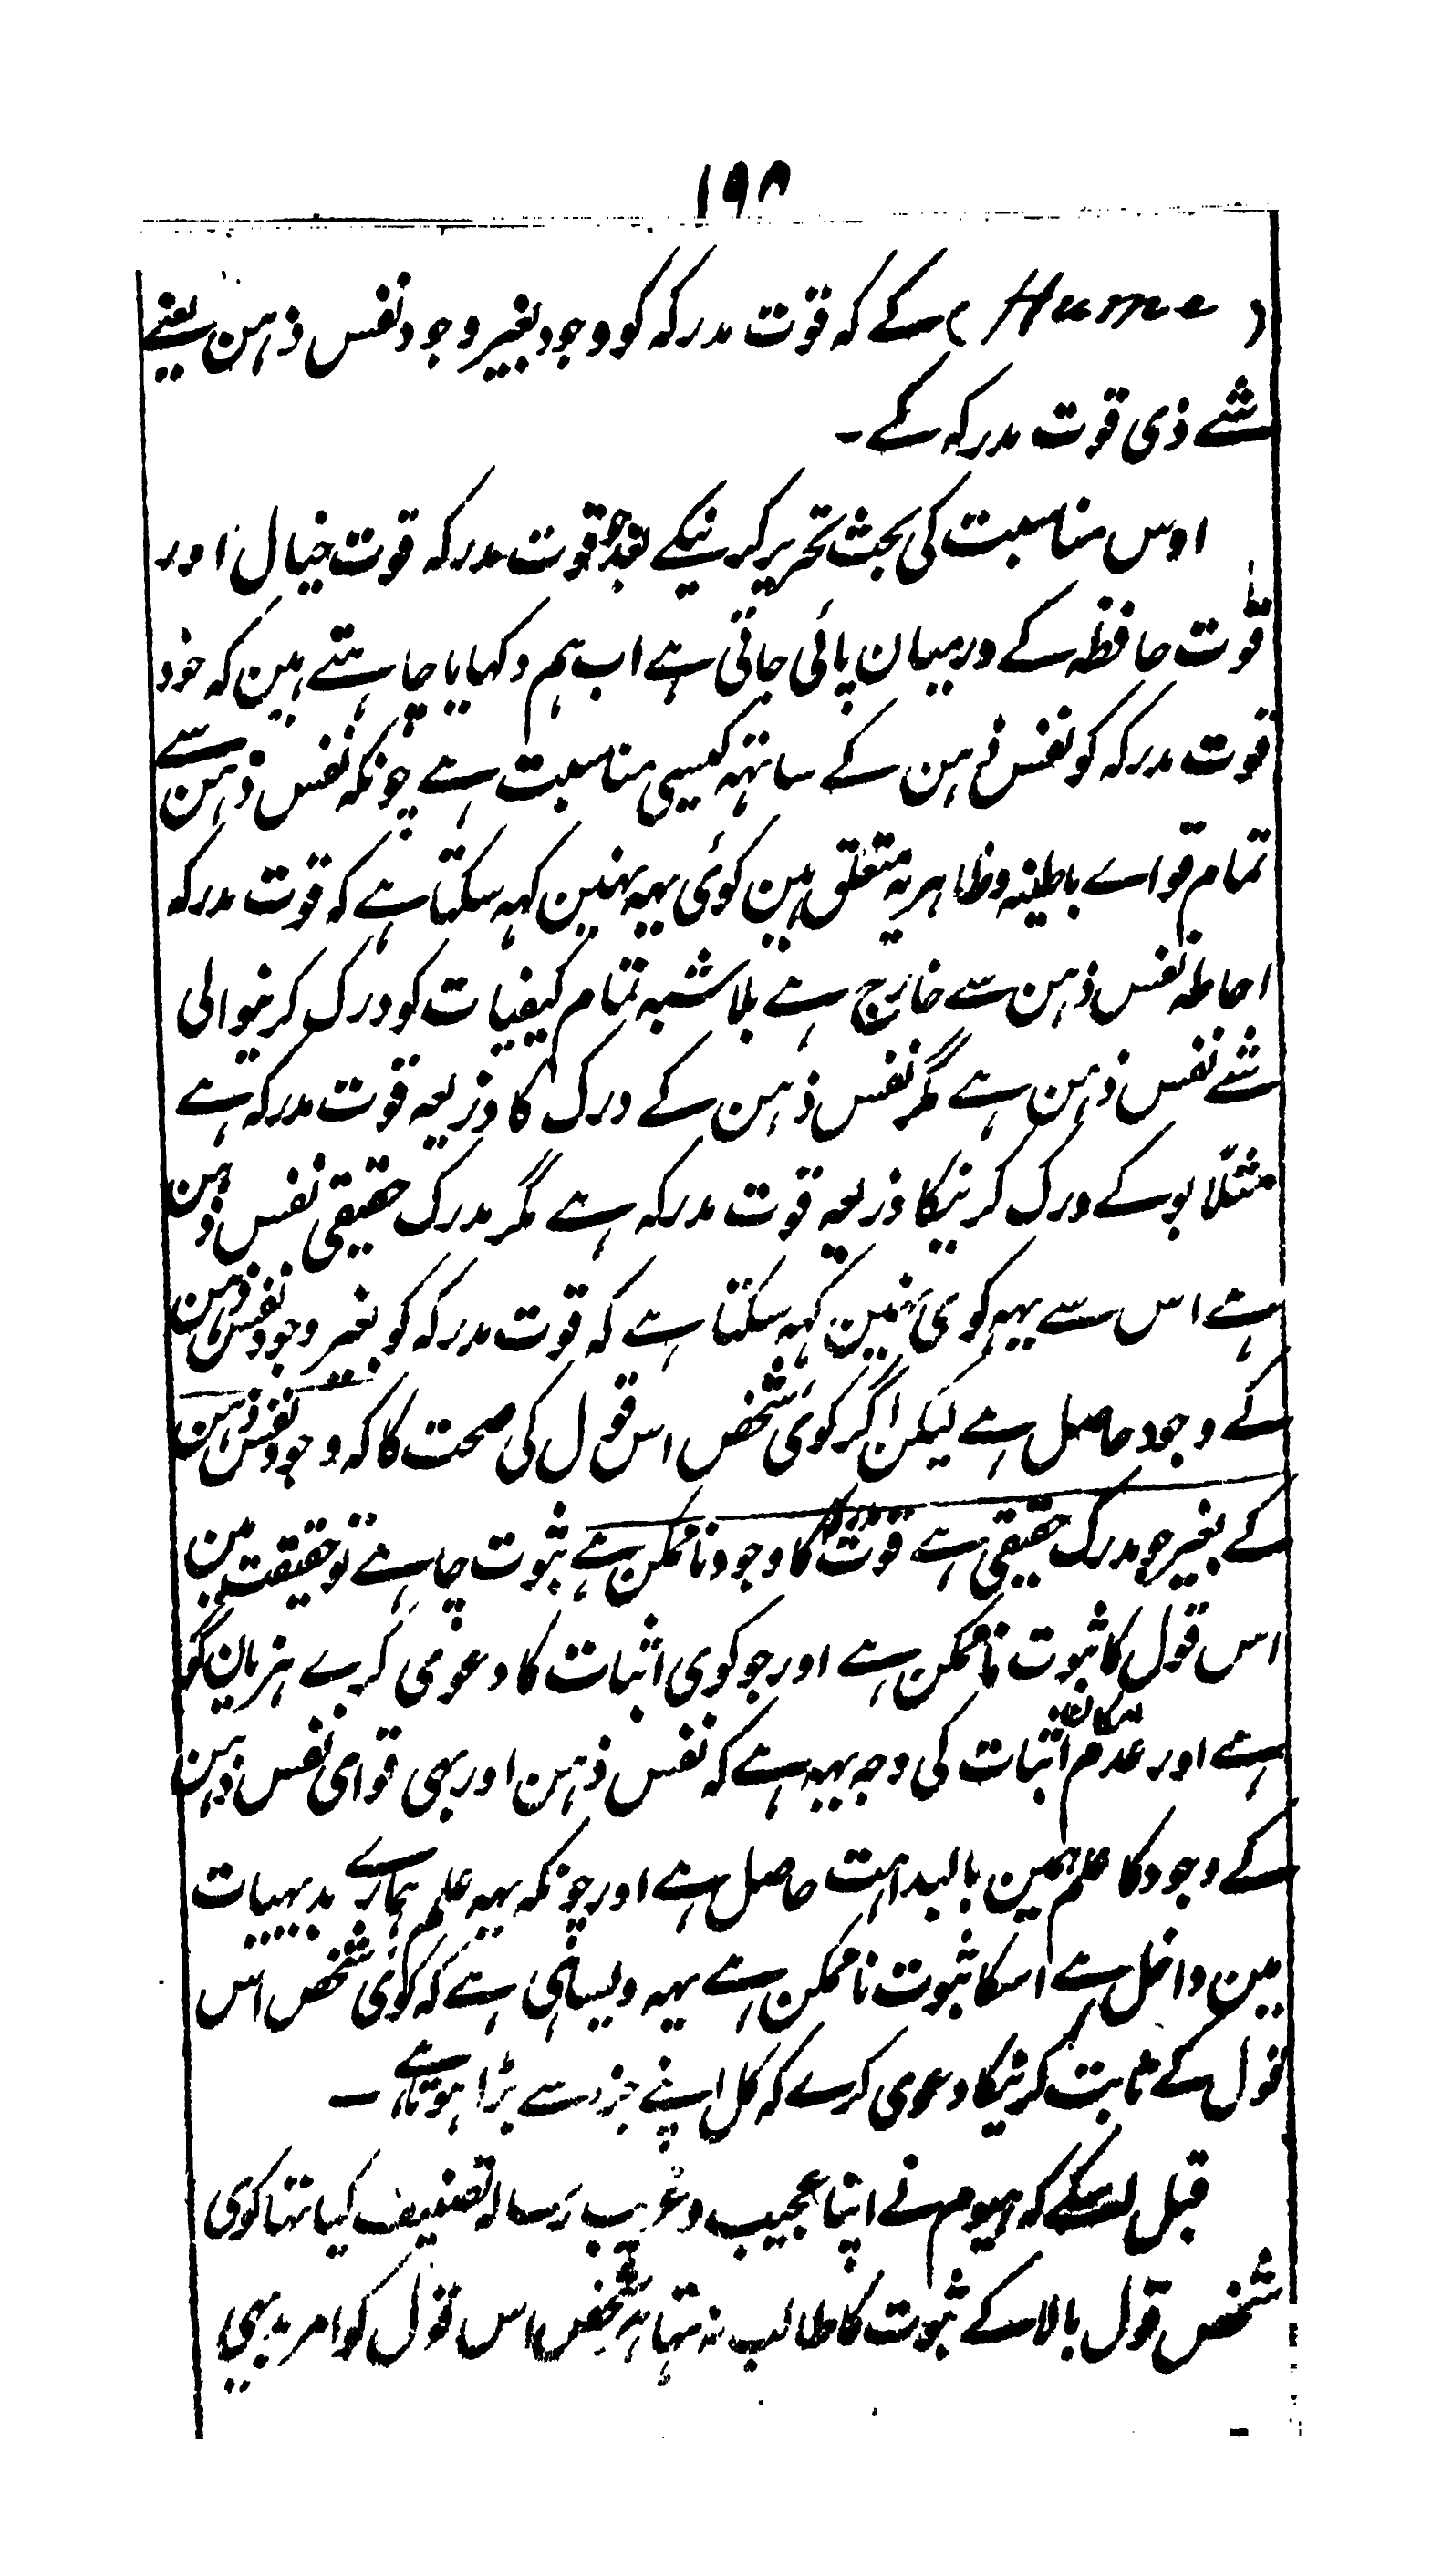 ۱۹۸
(Hume) کے کہ قوّت مدرکہ کو وجود بغیر وجود نفس ذہن یعنے
شے ذی قوت مدرکہ کے ۔
اوس مناسبت کی بحث تحریر کرنیکے بعد جو قوت مدرکہ قوت خیال اور
قوّت حافظہ کے درمیان پائی جاتی ہے اب ہم دکہایا چاہتے ہین کہ خود
قوت مدرکہ کو نفس ذہن کے ساتہہ کیسی مناسبت ہے چونکہ نفس ذہن سے
تمام قواے باطنیہ و ظاہریہ متعلق ہین کوئی یہہ نہین کہہ سکتا ہے کہ قوت مدرکہ
احاطہ نفس ذہن سے خارج ہے بلا شبہ تمام کیفیات کو درک کرنیوالی
شے نفس ذہن ہے مگر نفس ذہن کے درک کا ذریعہ قوت مدرکہ ہے
مثلاً بو کے درک کرنیکا ذریعہ قوت مدرکہ ہے مگر مدرک حقیقی نفس ذہن
ہے اس سے یہہ کوی نہین کہہ سکتا ہے کہ قوت مدرکہ کو بغیر وجود نفس ذہن
کے وجود حاصل ہے لیکن اگر کوئی شخص اس قول کی صحت کا کہ وجود نفس ذہن
کے بغیر جو مدرک حقیقی ہے قوت مدرکہ کا وجود ناممکن ہے ثبوت چاہے تو حقیقت مین
اس قول کا ثبوت ناممکن ہے اور جو کوی اثبات کا دعوٰی کرے ہزیان گو
ہے اور عدم امکان اثبات کی وجہ یہہ ہے کہ نفس ذہن اور بہی قواے نفس ذہن
کے وجود کا علم ہمین بالبداہت حاصل ہے اور چونکہ یہہ علم ہمارے بدیہیات
مین داخل ہے اسکا ثبوت ناممکن ہے یہہ ویسا ہی ہے کہ کوئی شخص اس
قول کے ثابت کرنیکا دعوی کرے کہ کل اپنے جزء سے بڑا ہوتا ہے ۔
قبل اسکے کہ ہیوم نے اپنا عجیب و غریب رسالہ تصنیف کیا تہا کوی
شخص قول بالا کے ثبوت کا طالب نہ تہا ہر شخص اس قول کو امر بدیہی